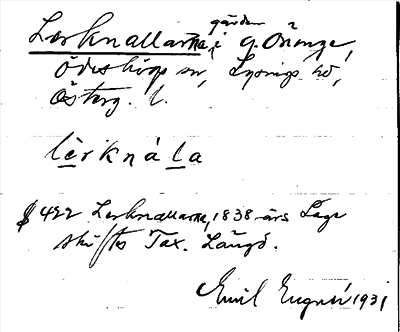 Lerknallarna, i gården g. Önenge,
Ödeshögs sn, Lysings hd,
Österg. l.
lèrknála
§ 422 Lerknallarna, 1838 års Laga
skiftes Tax. Längd.
Emil 1931